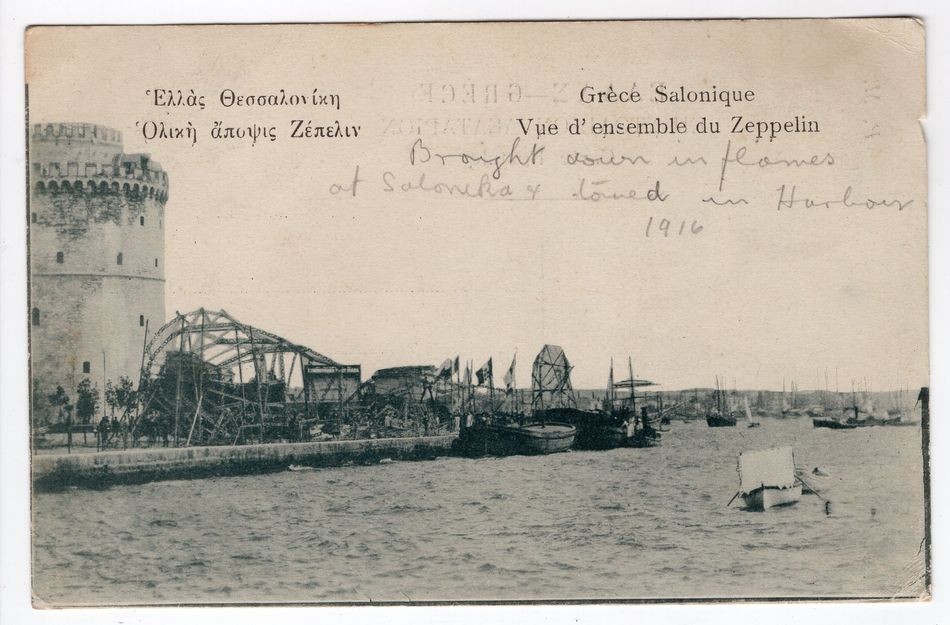 Ἑλλὰς Θεσσαλονίκη
Ὁλικὴ ἄποψις Ζέπελιν
Grèce Salonique
Vue d'ensemble du Zeppelin
Brought down in flames
at Salonika & towed in Harbour
1916